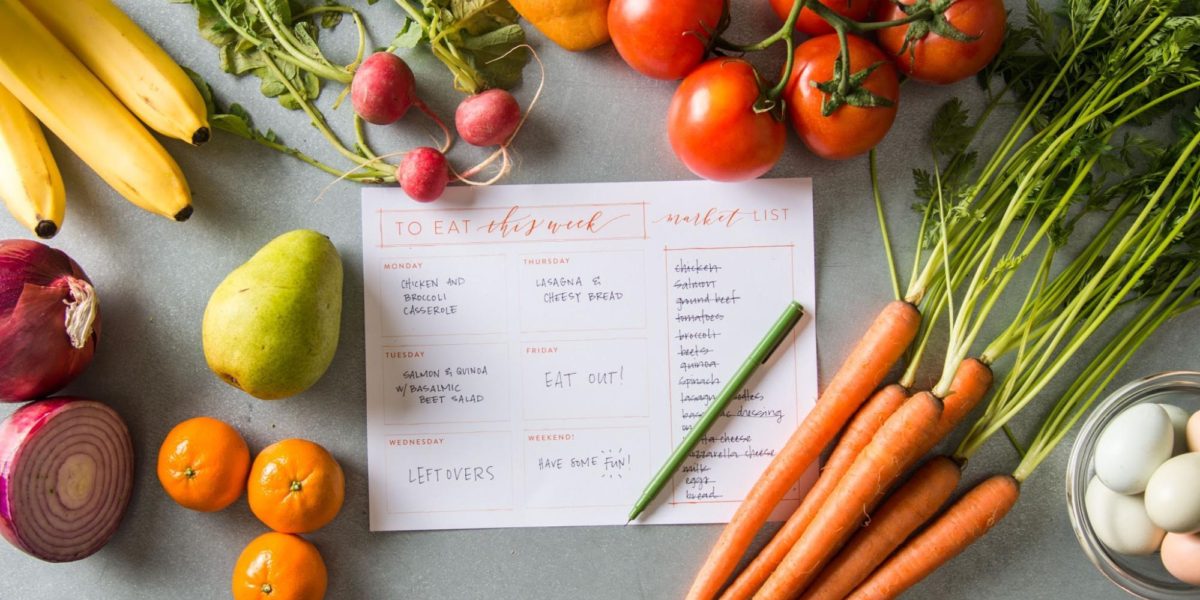 TO EAT this week
MONDAY
CHICKEN AND
BROCCOLI
CASSEROLE
TUESDAY
SALMON & QUINOA
W/ BASALMIC
BEET SALAD
WEDNESDAY
LEFTOVERS
THURSDAY
LASAGNA &
CHEESY BREAD
FRIDAY
EAT OUT!
WEEKEND!
HAVE SOME FUN!
market LIST
chicken
salmon
ground beef
tomatoes
broccoli
beets
quinoa
spinach
lasagna noodles
dressing
cheese
mozzarella cheese
milk
eggs
bread